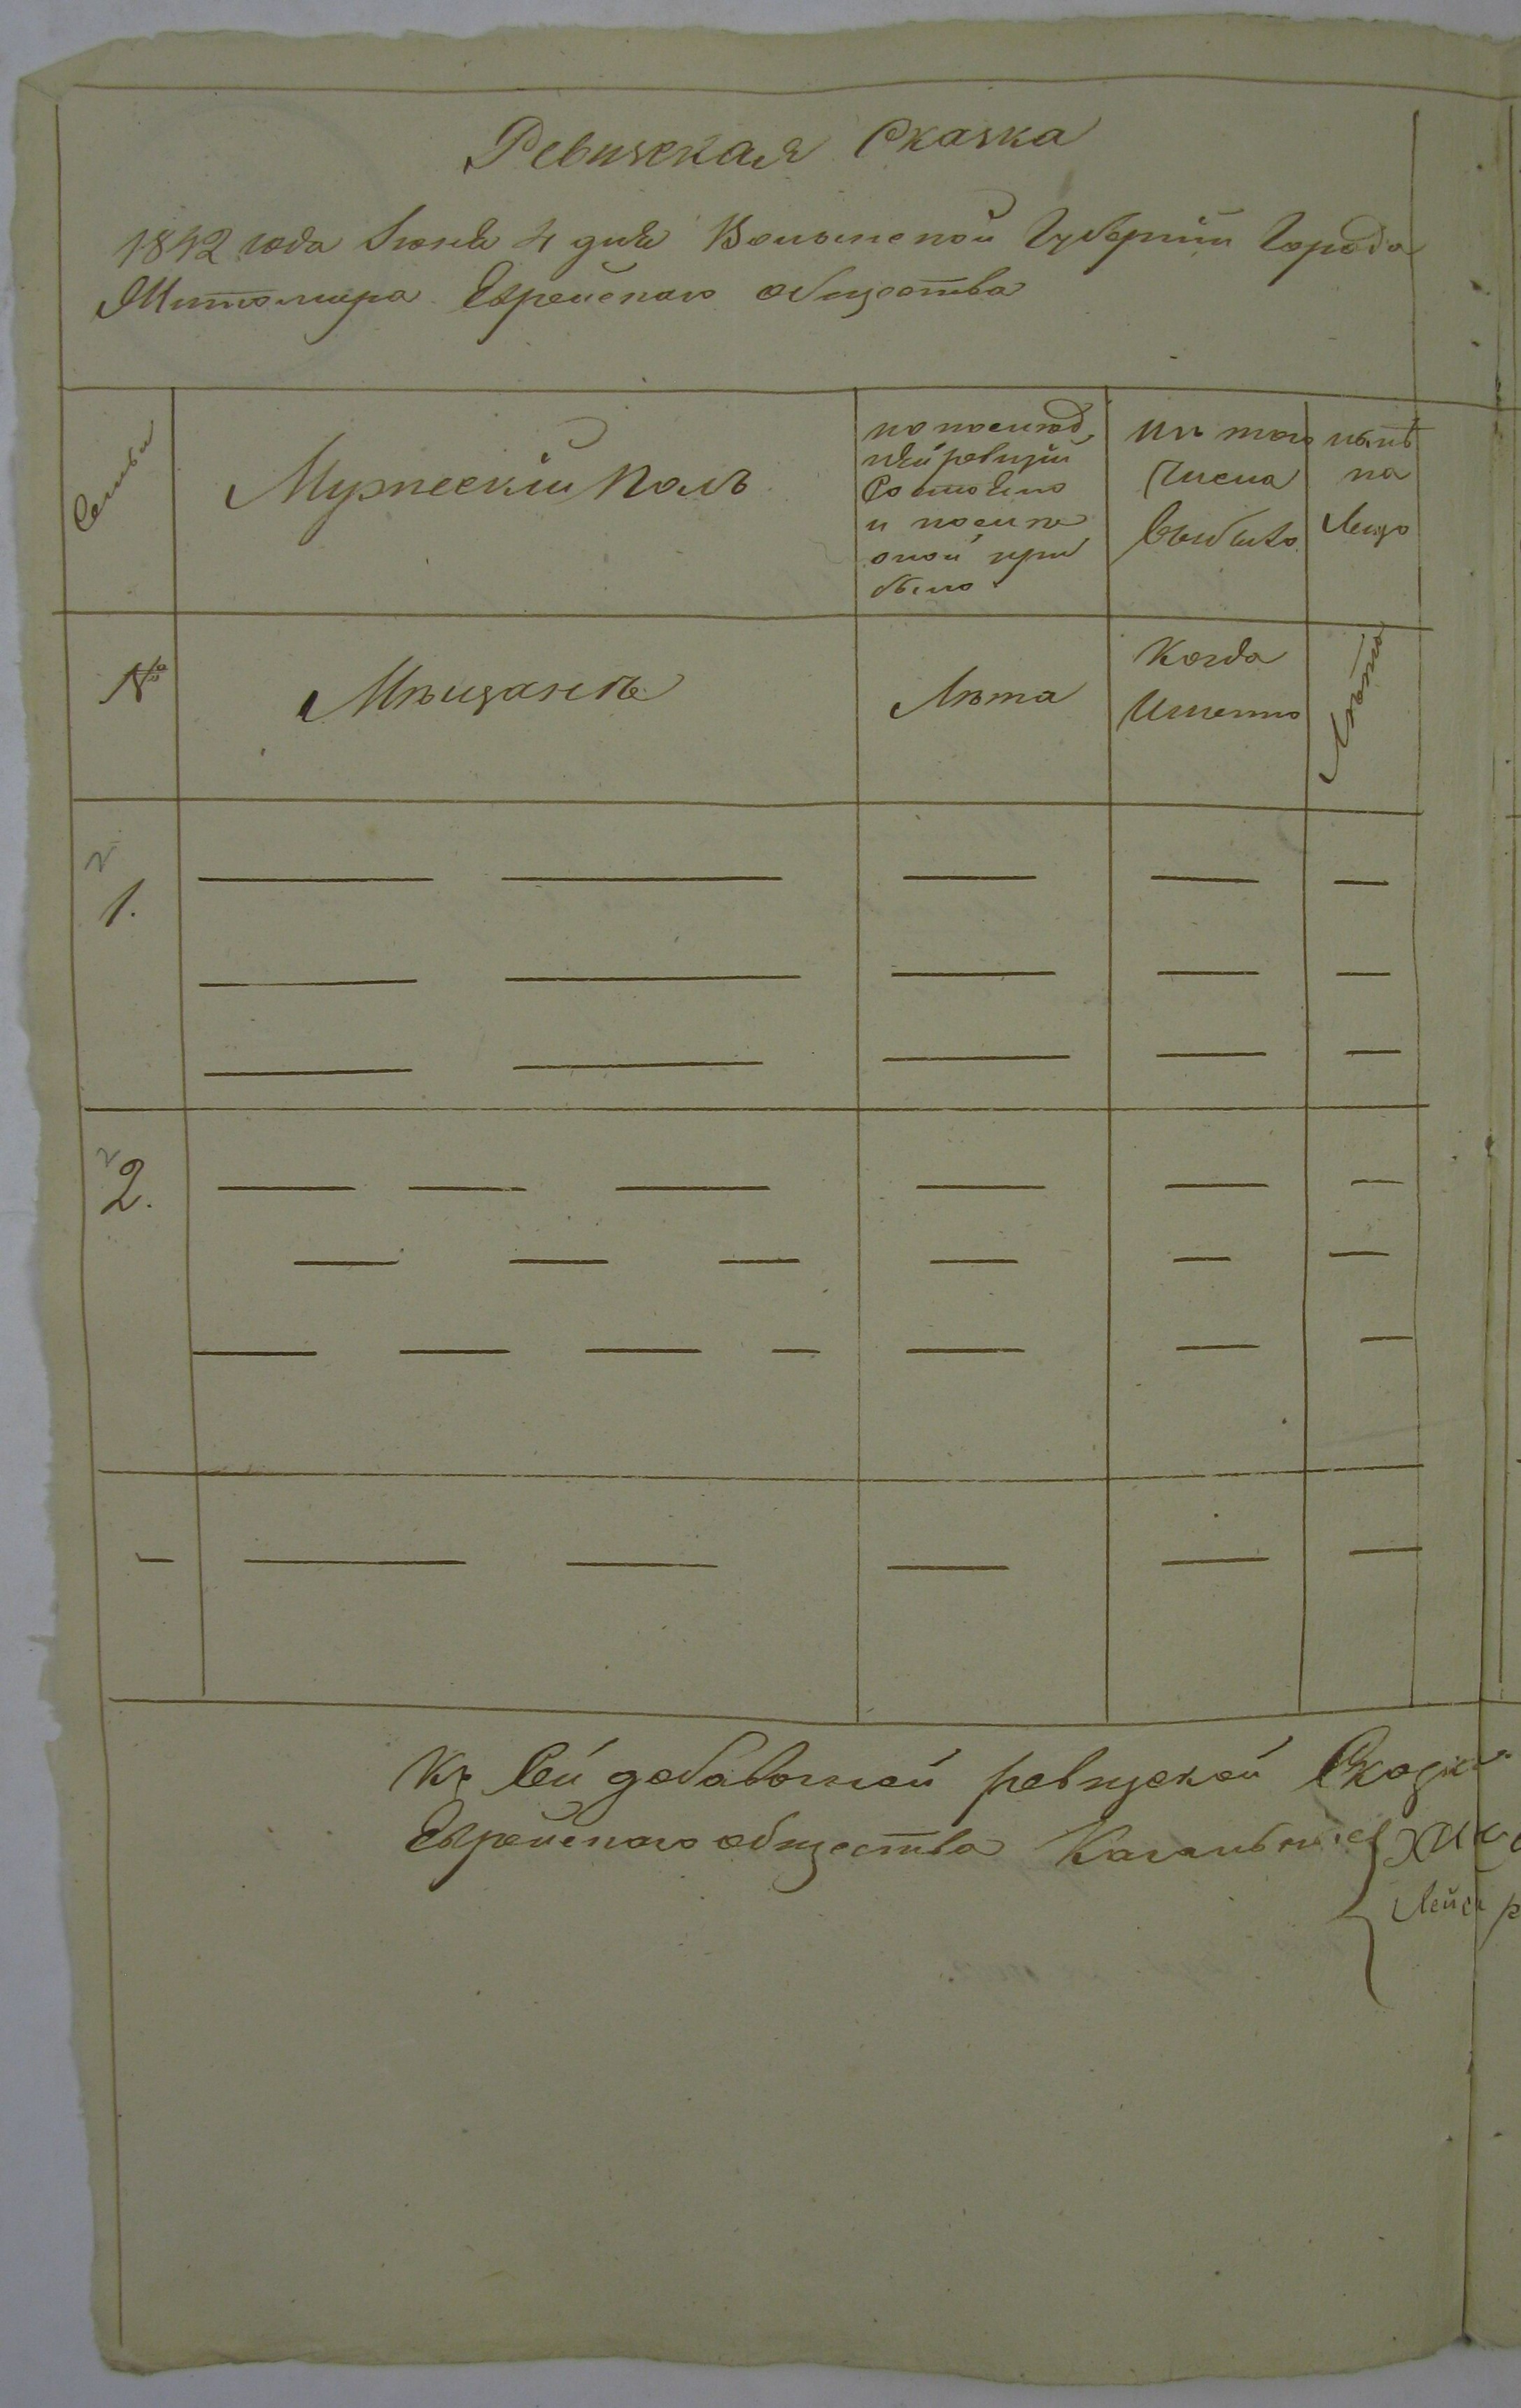 Ревизская Сказка
1842 года Июня 4 дня Волынской Губернии Города
Житомира Еврейского общества
Семьи
Мужескій полъ
по послѣд,
ней ревизіи
Состояло
и после
оной при
было
Изъ того
числа
выбыло
нынѣ
на
Лицо
№
Мѣщанѣ
Лѣта
Когда
Именно
Лѣта
1.
— — — — —
— — — — —
— — — — —
2.
— — — — — —
— — — — — —
— — — — — — —
— — — — — —
Къ Сей добавочной ревизской Сказки
Еврейского общества Кагальные
Лейзе р